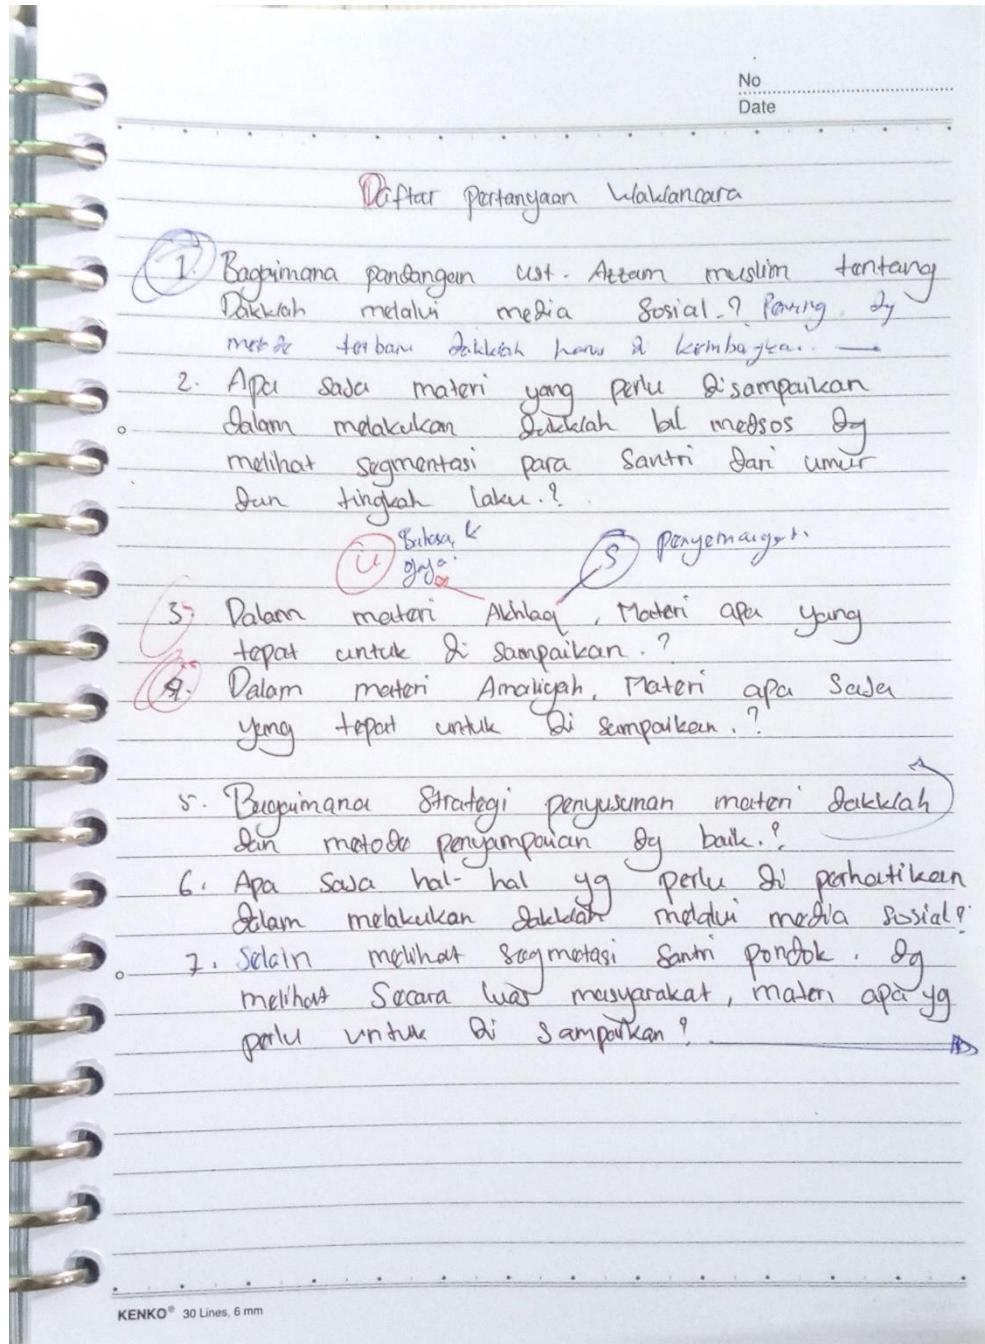 No
Date
Daftar pertanyaan Wawancara
1. Bagaimana pandangan ust. Azzam muslim tentang
Dakwah melalui media Sosial.? Penting. dg
metode terbaru dakwah harus di kembangkan.
2. Apa saja materi yang perlu disampaikan
dalam melakukan dakwah bil medsos dg
melihat segmentasi para Santri dari umur
dan tingkah laku.?
U Bahasa, k S penyemangat.
gaya
3. Dalam materi Akhlaq, Materi apa yang
tepat untuk di sampaikan.?
4. Dalam materi Amaliyah, Materi apa saja
yang tepat untuk di sampaikan.?
5. Bagaimana Strategi penyusunan materi dakwah
dan metode penyampaian dg baik.?
6. Apa saja hal-hal yg perlu di perhatikan
dalam melakukan dakwah melalui media sosial?
7. Selain melihat segmetasi santri pondok. dg
melihat Secara luas masyarakat, materi apa yg
perlu untuk di sampaikan?
KENKO® 30 Lines, 6 mm